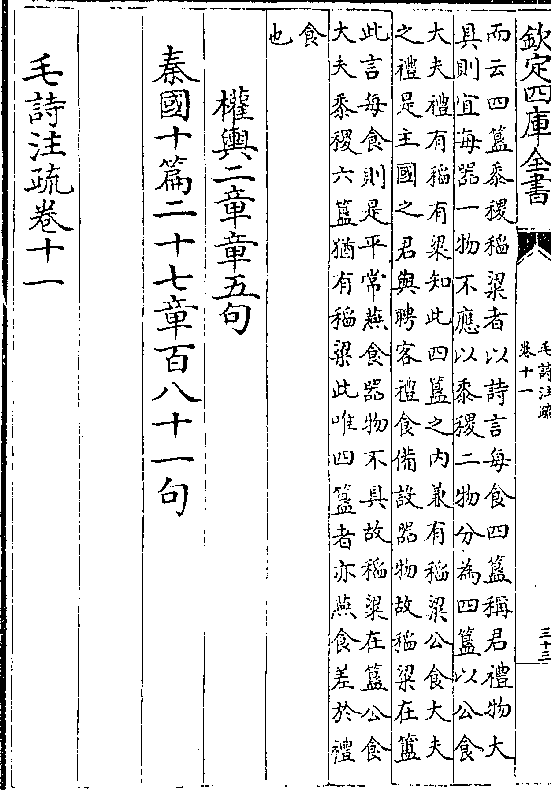 欽定四庫全書
毛詩注疏
卷十一
三十三
而云四簋黍稷稻粱者以詩言每食四簋稱君禮物大
具則宜每器一物不應以黍稷二物分為四簋以公食
大夫禮有稻有粱知此四簋之内兼有稻粱公食大夫
之禮是主國之君與聘客禮食備設器物故稻粱在簠
此言每食則是平常燕食器物不具故稻粱在簋公食
大夫黍稷六簋猶有稻粱此唯四簋者亦燕食差於禮
食
也
權輿二章章五句
秦國十篇二十七章百八十一句
毛詩注疏卷十一